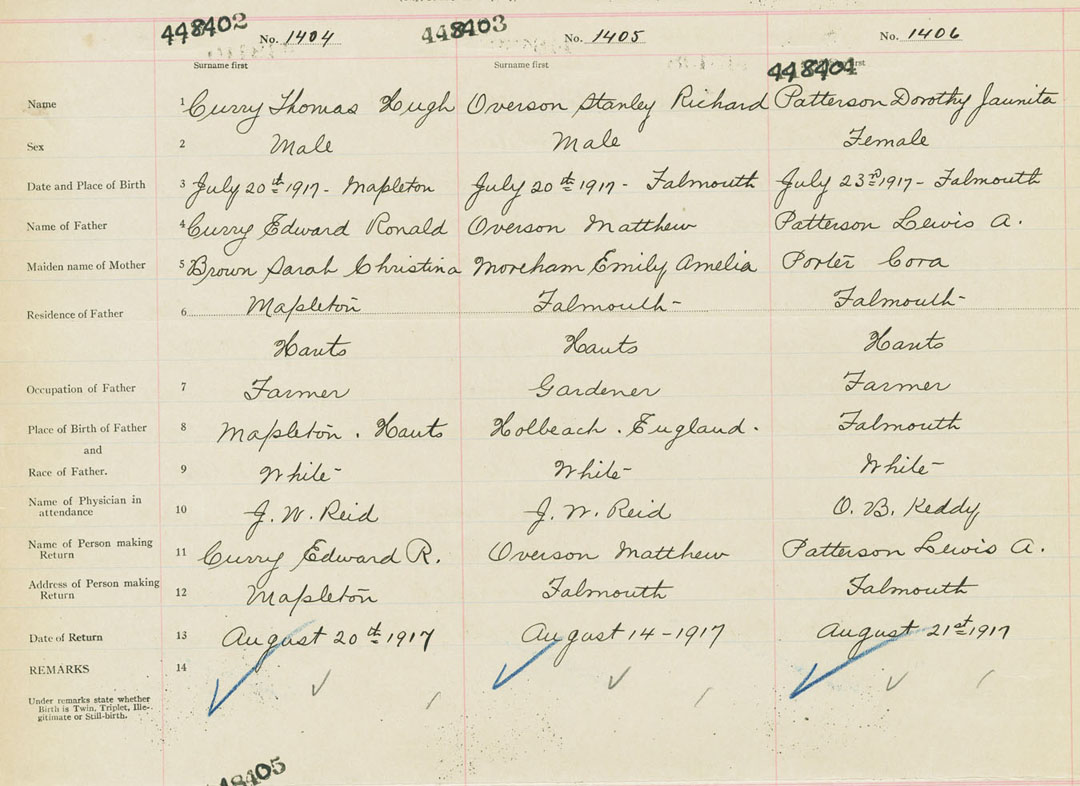 448402 448403
No. 1404 No. 1405 No. 1406
Surname first Surname first first
448404
Name 1 Curry Thomas Hugh Overson Stanley Richard Patterson Dorothy Jaunita
Sex 2 Male Male Female
Date and Place of Birth 3 July 20th 1917 - Mapleton July 20th 1917 - Falmouth July 23rd 1917 - Falmouth
Name of Father 4 Curry Edward Ronald Overson Matthew Patterson Lewis A.
Maiden name of Mother 5 Brown Sarah Christina Moreham Emily Amelia Porter Cora
Residence of Father 6 Mapleton Falmouth Falmouth
Hants Hants Hants
Occupation of Father 7 Farmer Gardener Farmer
Place of Birth of Father 8 Mapleton . Hants Holbeach . England . Falmouth
and
Race of Father. 9 White White White
Name of Physician in attendance 10 J. W. Reid J. W. Reid O. B. Keddy
Name of Person making Return 11 Curry Edward R. Overson Matthew Patterson Lewis A.
Address of Person making Return 12 Mapleton Falmouth Falmouth
Date of Return 13 August 20th 1917 August 14 - 1917 August 21st 1917
REMARKS 14
Under remarks state whether
Birth is Twin, Triplet, Ille-
gitimate or Still-birth.
48405